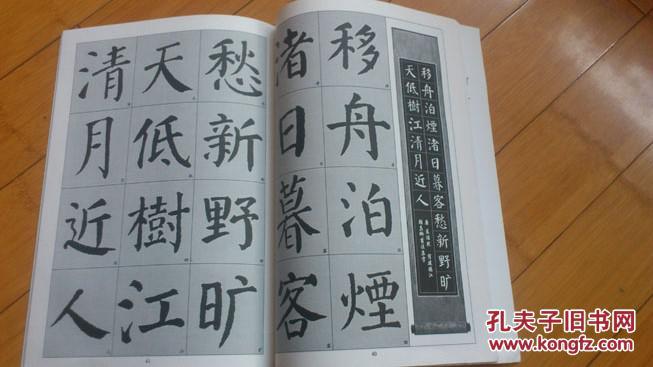 移舟泊煙渚日暮客愁新野旷
天低樹江清月近人
移舟泊煙
渚日暮客
愁新野旷
天低樹江
清月近人
40
41
孔夫子旧书网
www.kongfz.com